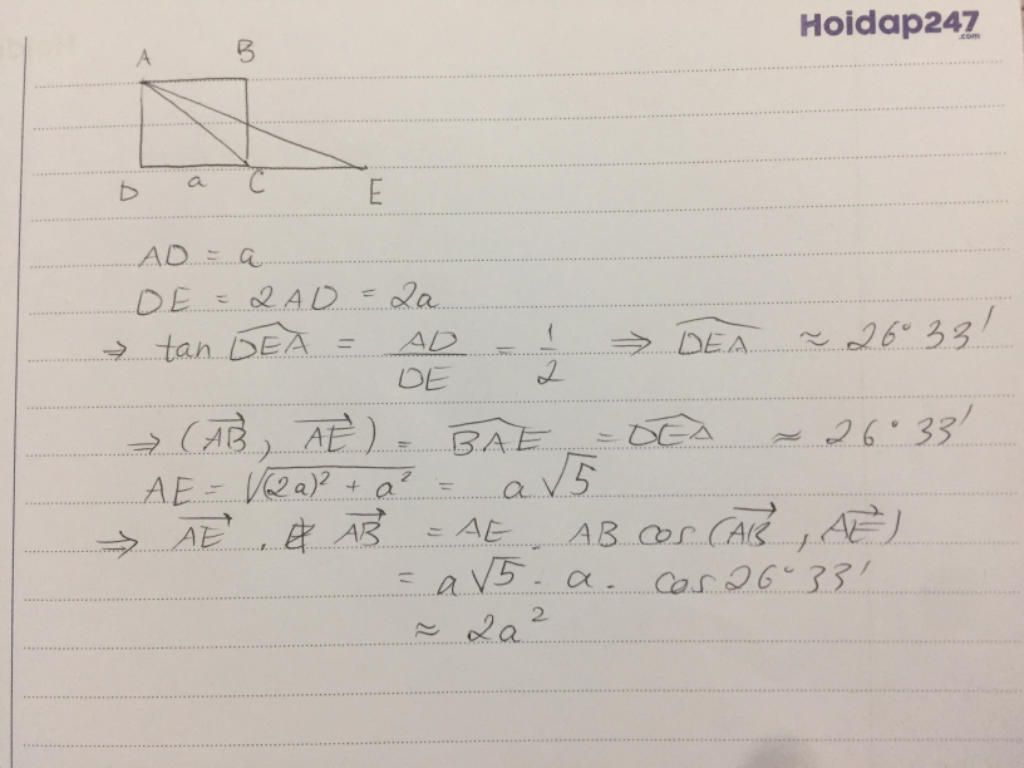 Hoidap247
.com
A B
D a C E
AD = a
DE = 2AD = 2a
⇒ tan \widehat{DEA} = \frac{AD}{DE} = \frac{1}{2} ⇒ \widehat{DEA} ≈ 26°33'
⇒ (\overrightarrow{AB}, \overrightarrow{AE}) = \widehat{BAE} = \widehat{DEA} ≈ 26°33'
AE = \sqrt{(2a)^2 + a^2} = a\sqrt{5}
⇒ \overrightarrow{AE} . \overrightarrow{AB} = AE . AB cos(\overrightarrow{AB}, \overrightarrow{AE})
= a\sqrt{5} . a . cos 26°33'
≈ 2a^2